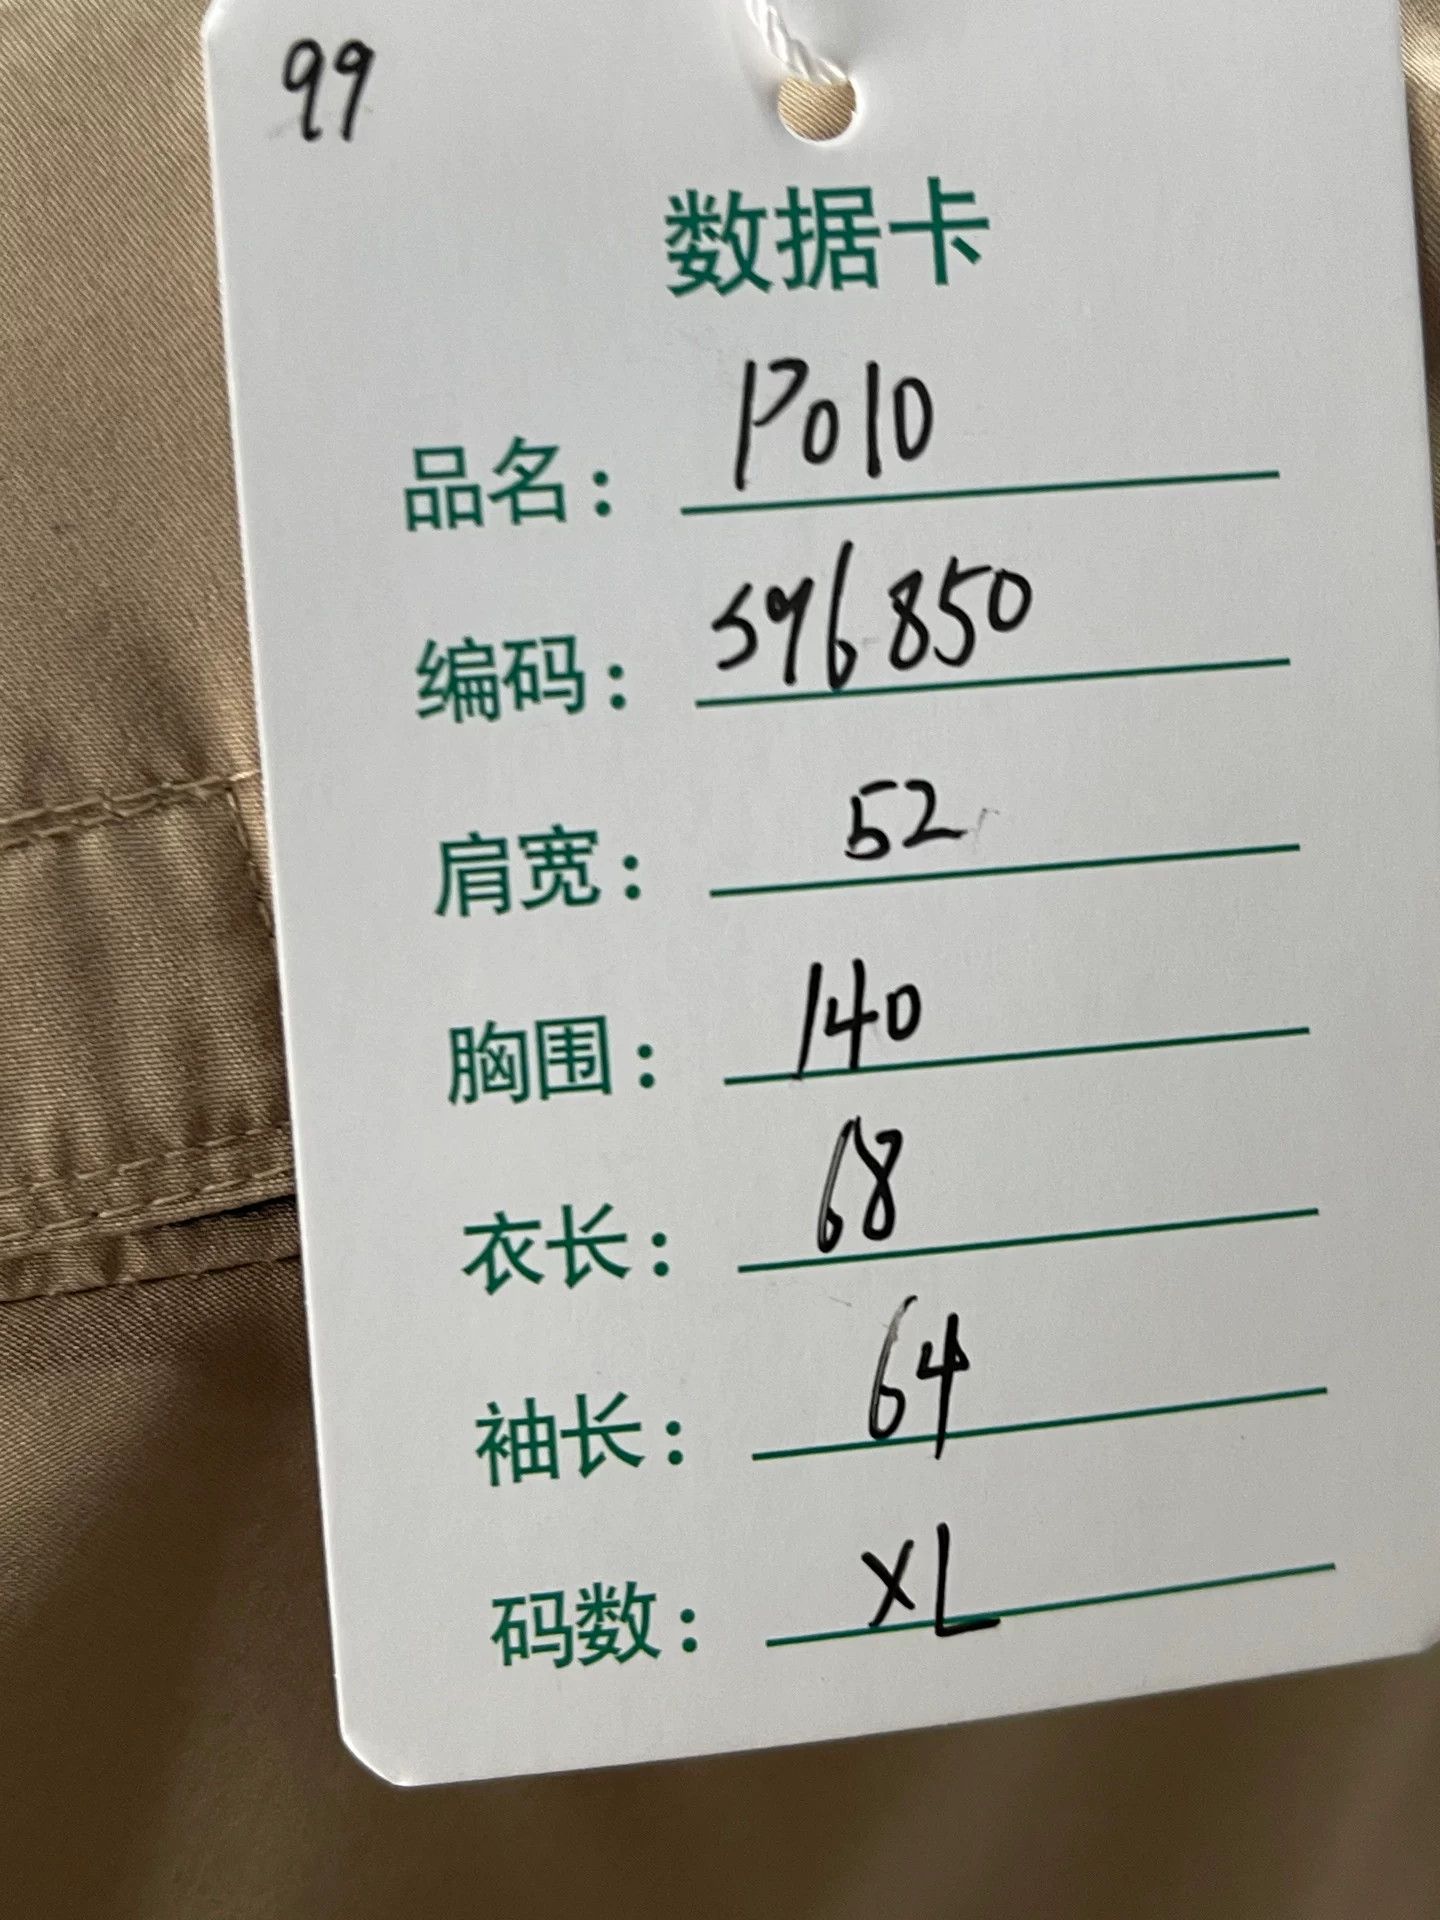 99
数据卡
品名: Polo
编码: 596850
肩宽: 52
胸围: 140
衣长: 68
袖长: 64
码数: XL